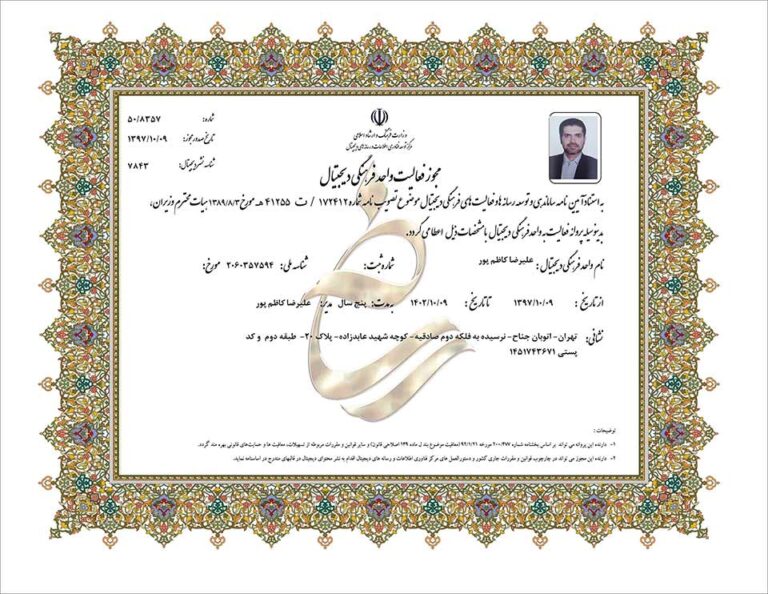 وزارت فرهنگ و ارشاد اسلامی
مرکز توسعه فناوری اطلاعات و رسانه های دیجیتال
شماره: ۵۰/۸۳۵۷
تاریخ صدور مجوز: ۱۳۹۷/۱۰/۰۹
شناسه نشر دیجیتال: ۷۸۴۳
مجوز فعالیت واحد فرهنگی دیجیتال
به استناد آیین نامه ساماندهی و توسعه رسانه ها و فعالیت های فرهنگی دیجیتال موضوع تصویب نامه شماره ۱۷۲۴۱۲ / ت ۴۱۲۵۵ هـ مورخ ۱۳۸۹/۸/۳ هیات محترم وزیران،
بدینوسیله پروانه فعالیت به واحد فرهنگی دیجیتال با مشخصات ذیل اعطا می گردد.
نام واحد فرهنگی دیجیتال: علیرضا کاظم پور شماره ثبت: شناسه ملی: ۲۰۶۰۳۵۷۵۹۴ مورخ:
از تاریخ: ۱۳۹۷/۱۰/۰۹ تا تاریخ: ۱۴۰۲/۱۰/۰۹ به مدت: پنج سال مدیر: علیرضا کاظم پور
نشانی: تهران- اتوبان جناح- نرسیده به فلکه دوم صادقیه- کوچه شهید عابدزاده- پلاک ۲۰- طبقه دوم و کد
پستی ۱۴۵۱۷۴۳۶۷۱
توضیحات :
۱- دارنده این پروانه می تواند بر اساس بخشنامه شماره ۲۰۰/۴۷۷ مورخه ۹۲/۱/۲۱ (معافیت موضوع بند ل ماده ۱۳۹ اصلاحی قانون) و سایر قوانین و مقررات مربوطه از تسهیلات، معافیت ها و حمایت‌های قانونی بهره مند گردد.
۲- دارنده این مجوز می تواند در چارچوب قوانین و مقررات جاری کشور و دستورالعمل های مرکز فناوری اطلاعات و رسانه های دیجیتال اقدام به نشر محتوای دیجیتال در قالبهای مندرج در اساسنامه نماید.